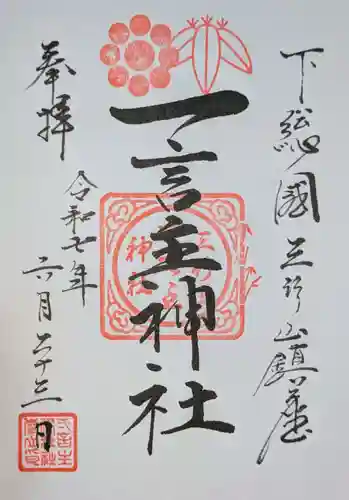 下総國三竹山鎮座
一言主神社
奉拝
令和七年
六月二十三日